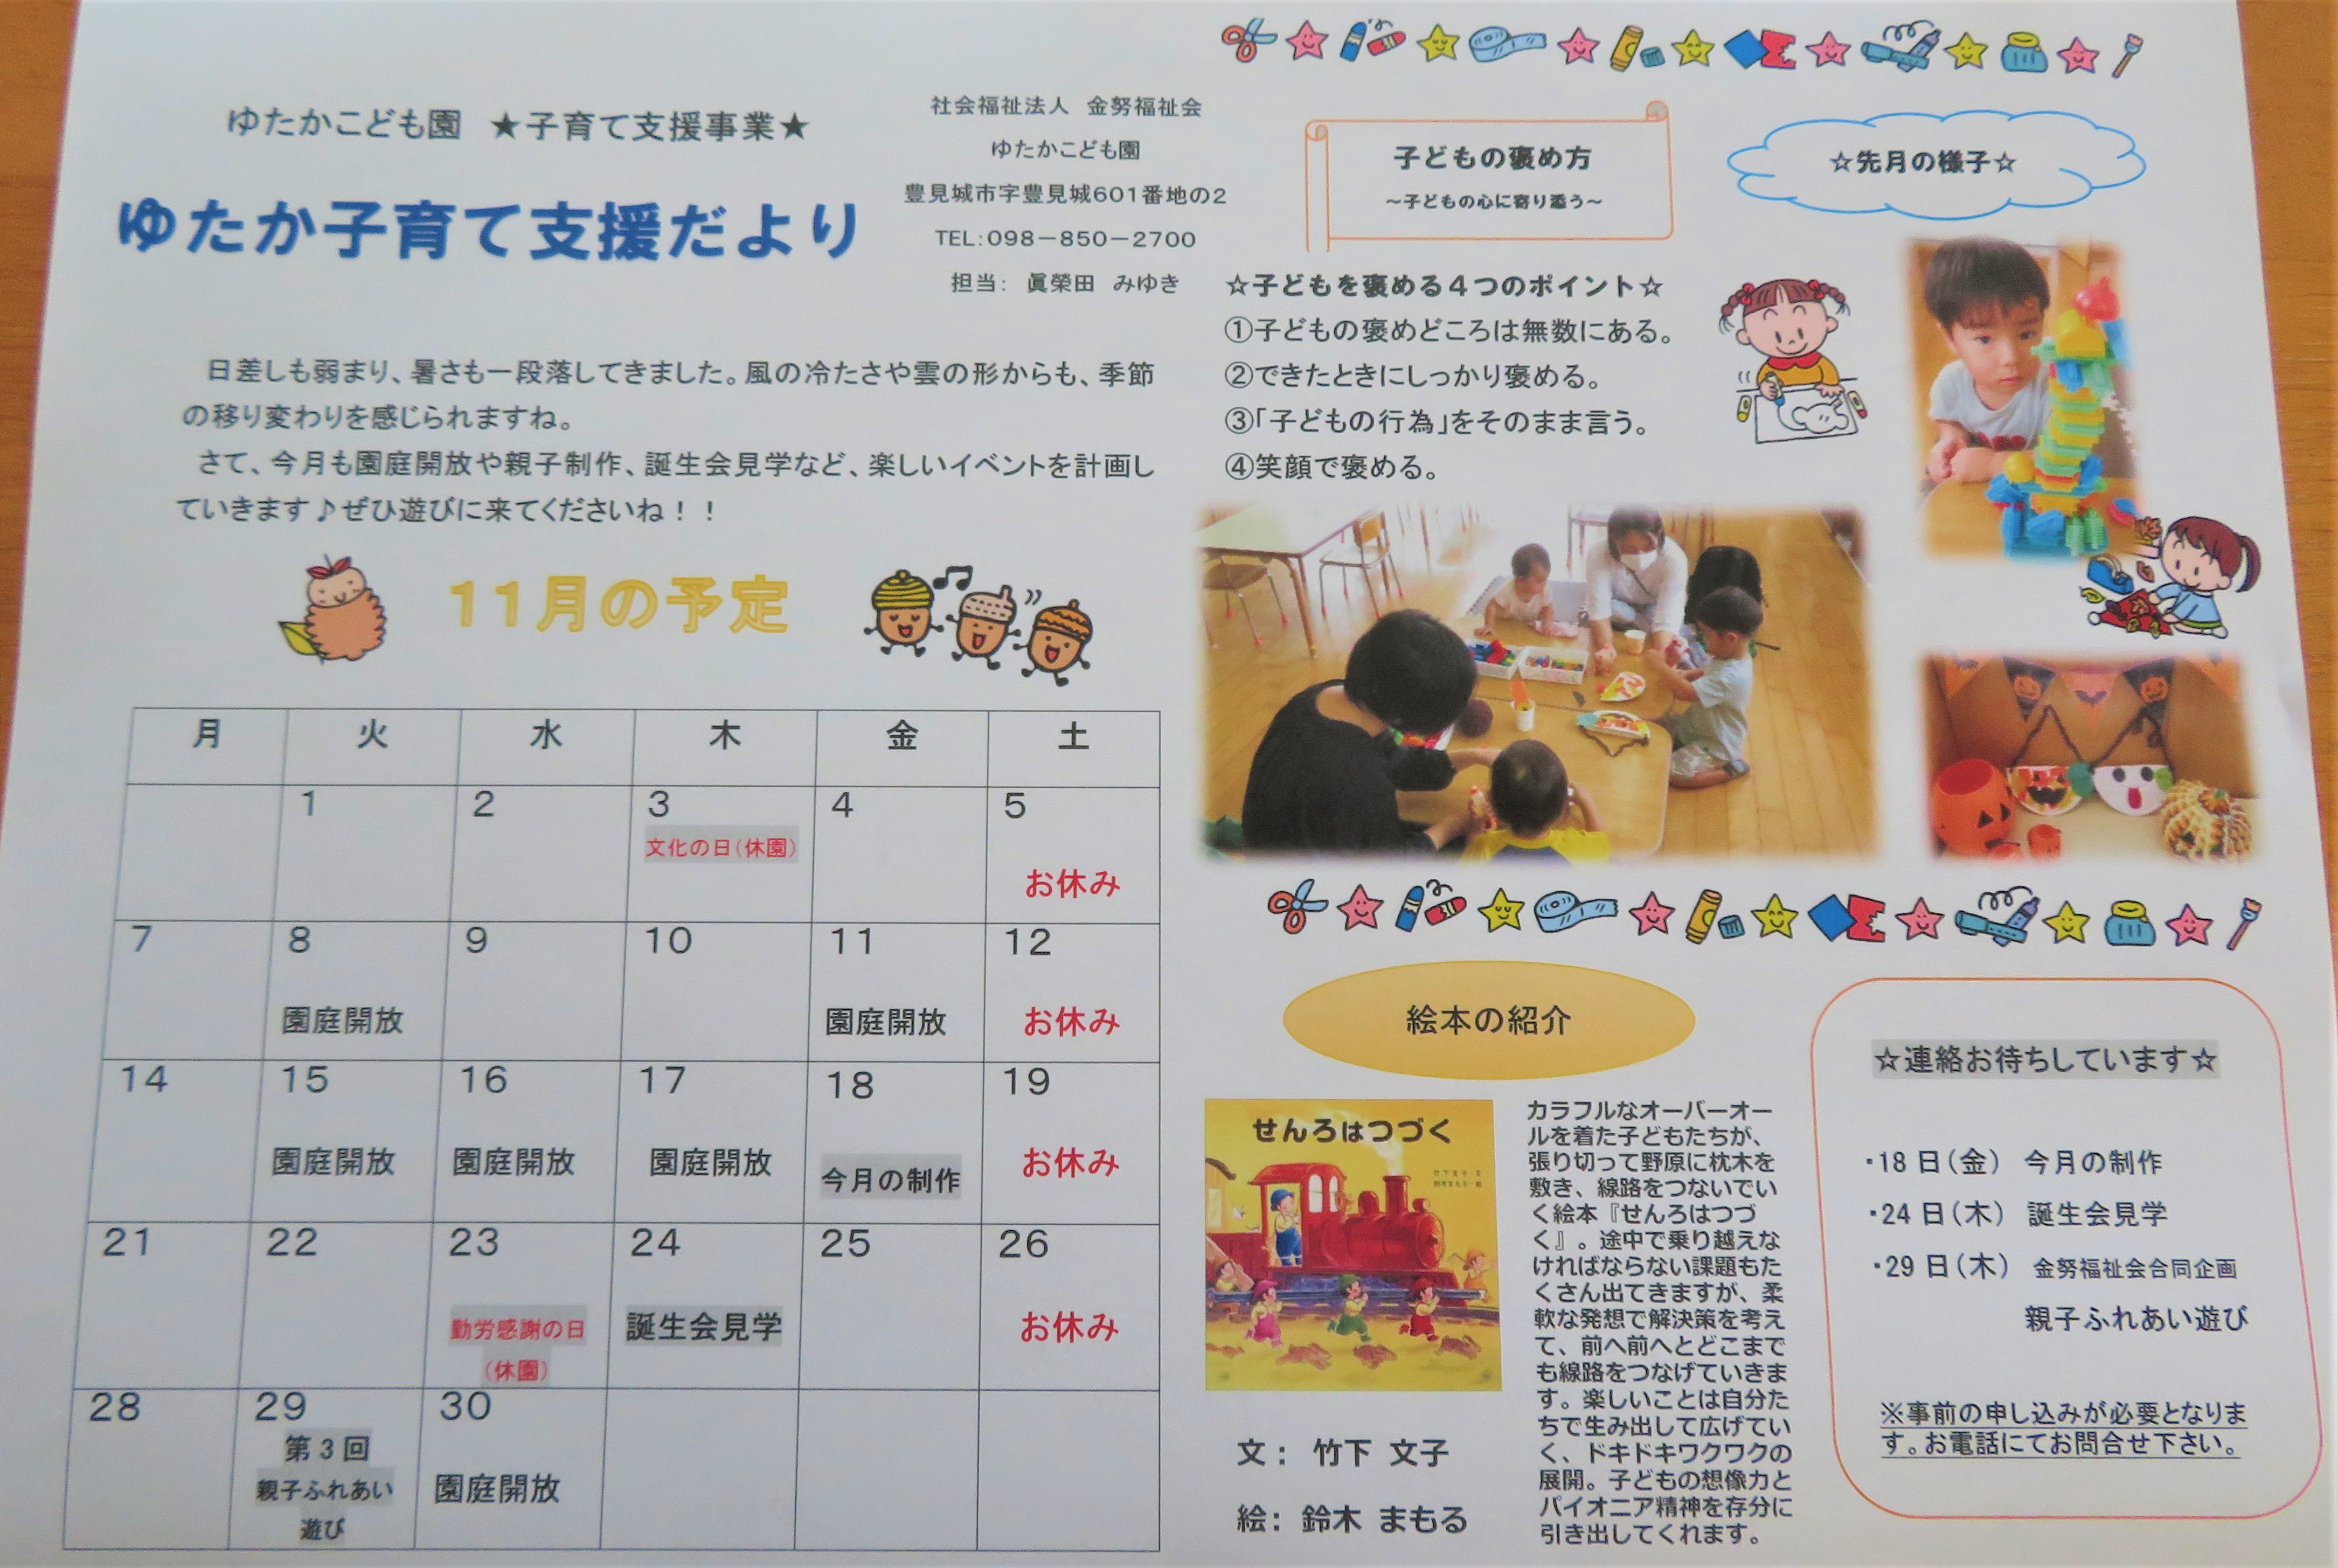 ゆたかこども園　★子育て支援事業★
ゆたか子育て支援だより
社会福祉法人　金努福祉会
ゆたかこども園
豊見城市字豊見城601番地の2
TEL:098－850－2700
担当：　眞榮田　みゆき
日差しも弱まり、暑さも一段落してきました。風の冷たさや雲の形からも、季節
の移り変わりを感じられますね。
さて、今月も園庭開放や親子制作、誕生会見学など、楽しいイベントを計画し
ていきます♪ぜひ遊びに来てくださいね！！
11月の予定
月 火 水 木 金 土
1 2 3 4 5
文化の日(休園)
お休み
7 8 9 10 11 12
園庭開放 園庭開放 お休み
14 15 16 17 18 19
園庭開放 園庭開放 園庭開放 今月の制作 お休み
21 22 23 24 25 26
勤労感謝の日 誕生会見学 お休み
(休園)
28 29 30
第3回
親子ふれあい 園庭開放
遊び
子どもの褒め方
～子どもの心に寄り添う～
☆先月の様子☆
☆子どもを褒める4つのポイント☆
①子どもの褒めどころは無数にある。
②できたときにしっかり褒める。
③「子どもの行為」をそのまま言う。
④笑顔で褒める。
絵本の紹介
せんろはつづく
文：　竹下　文子
絵：　鈴木　まもる
カラフルなオーバーオー
ルを着た子どもたちが、
張り切って野原に枕木を
敷き、線路をつないでい
く絵本『せんろはつづ
く』。途中で乗り越えな
ければならない課題もた
くさん出てきますが、柔
軟な発想で解決策を考え
て、前へ前へとどこまで
も線路をつなげていきま
す。楽しいことは自分た
ちで生み出して広げてい
く、ドキドキワクワクの
展開。子どもの想像力と
パイオニア精神を存分に
引き出してくれます。
☆連絡お待ちしています☆
・18日(金)　今月の制作
・24日(木)　誕生会見学
・29日(木)　金努福祉会合同企画
親子ふれあい遊び
※事前の申し込みが必要となりま
す。お電話にてお問合せ下さい。